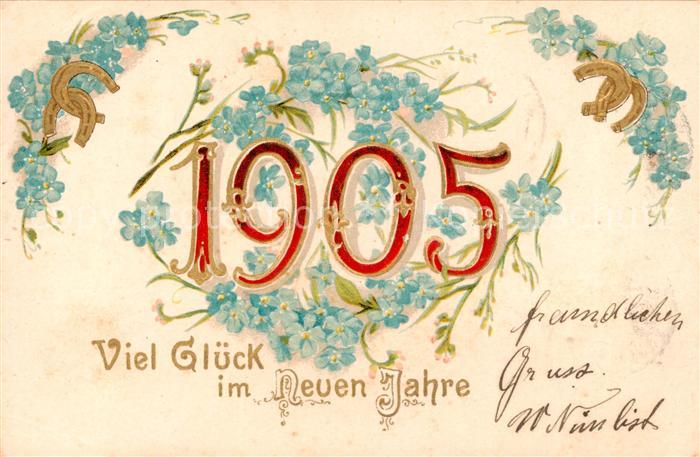 1905
Viel Glück
im Neuen Jahre
freundlichen
Gruss.
W Nimlist